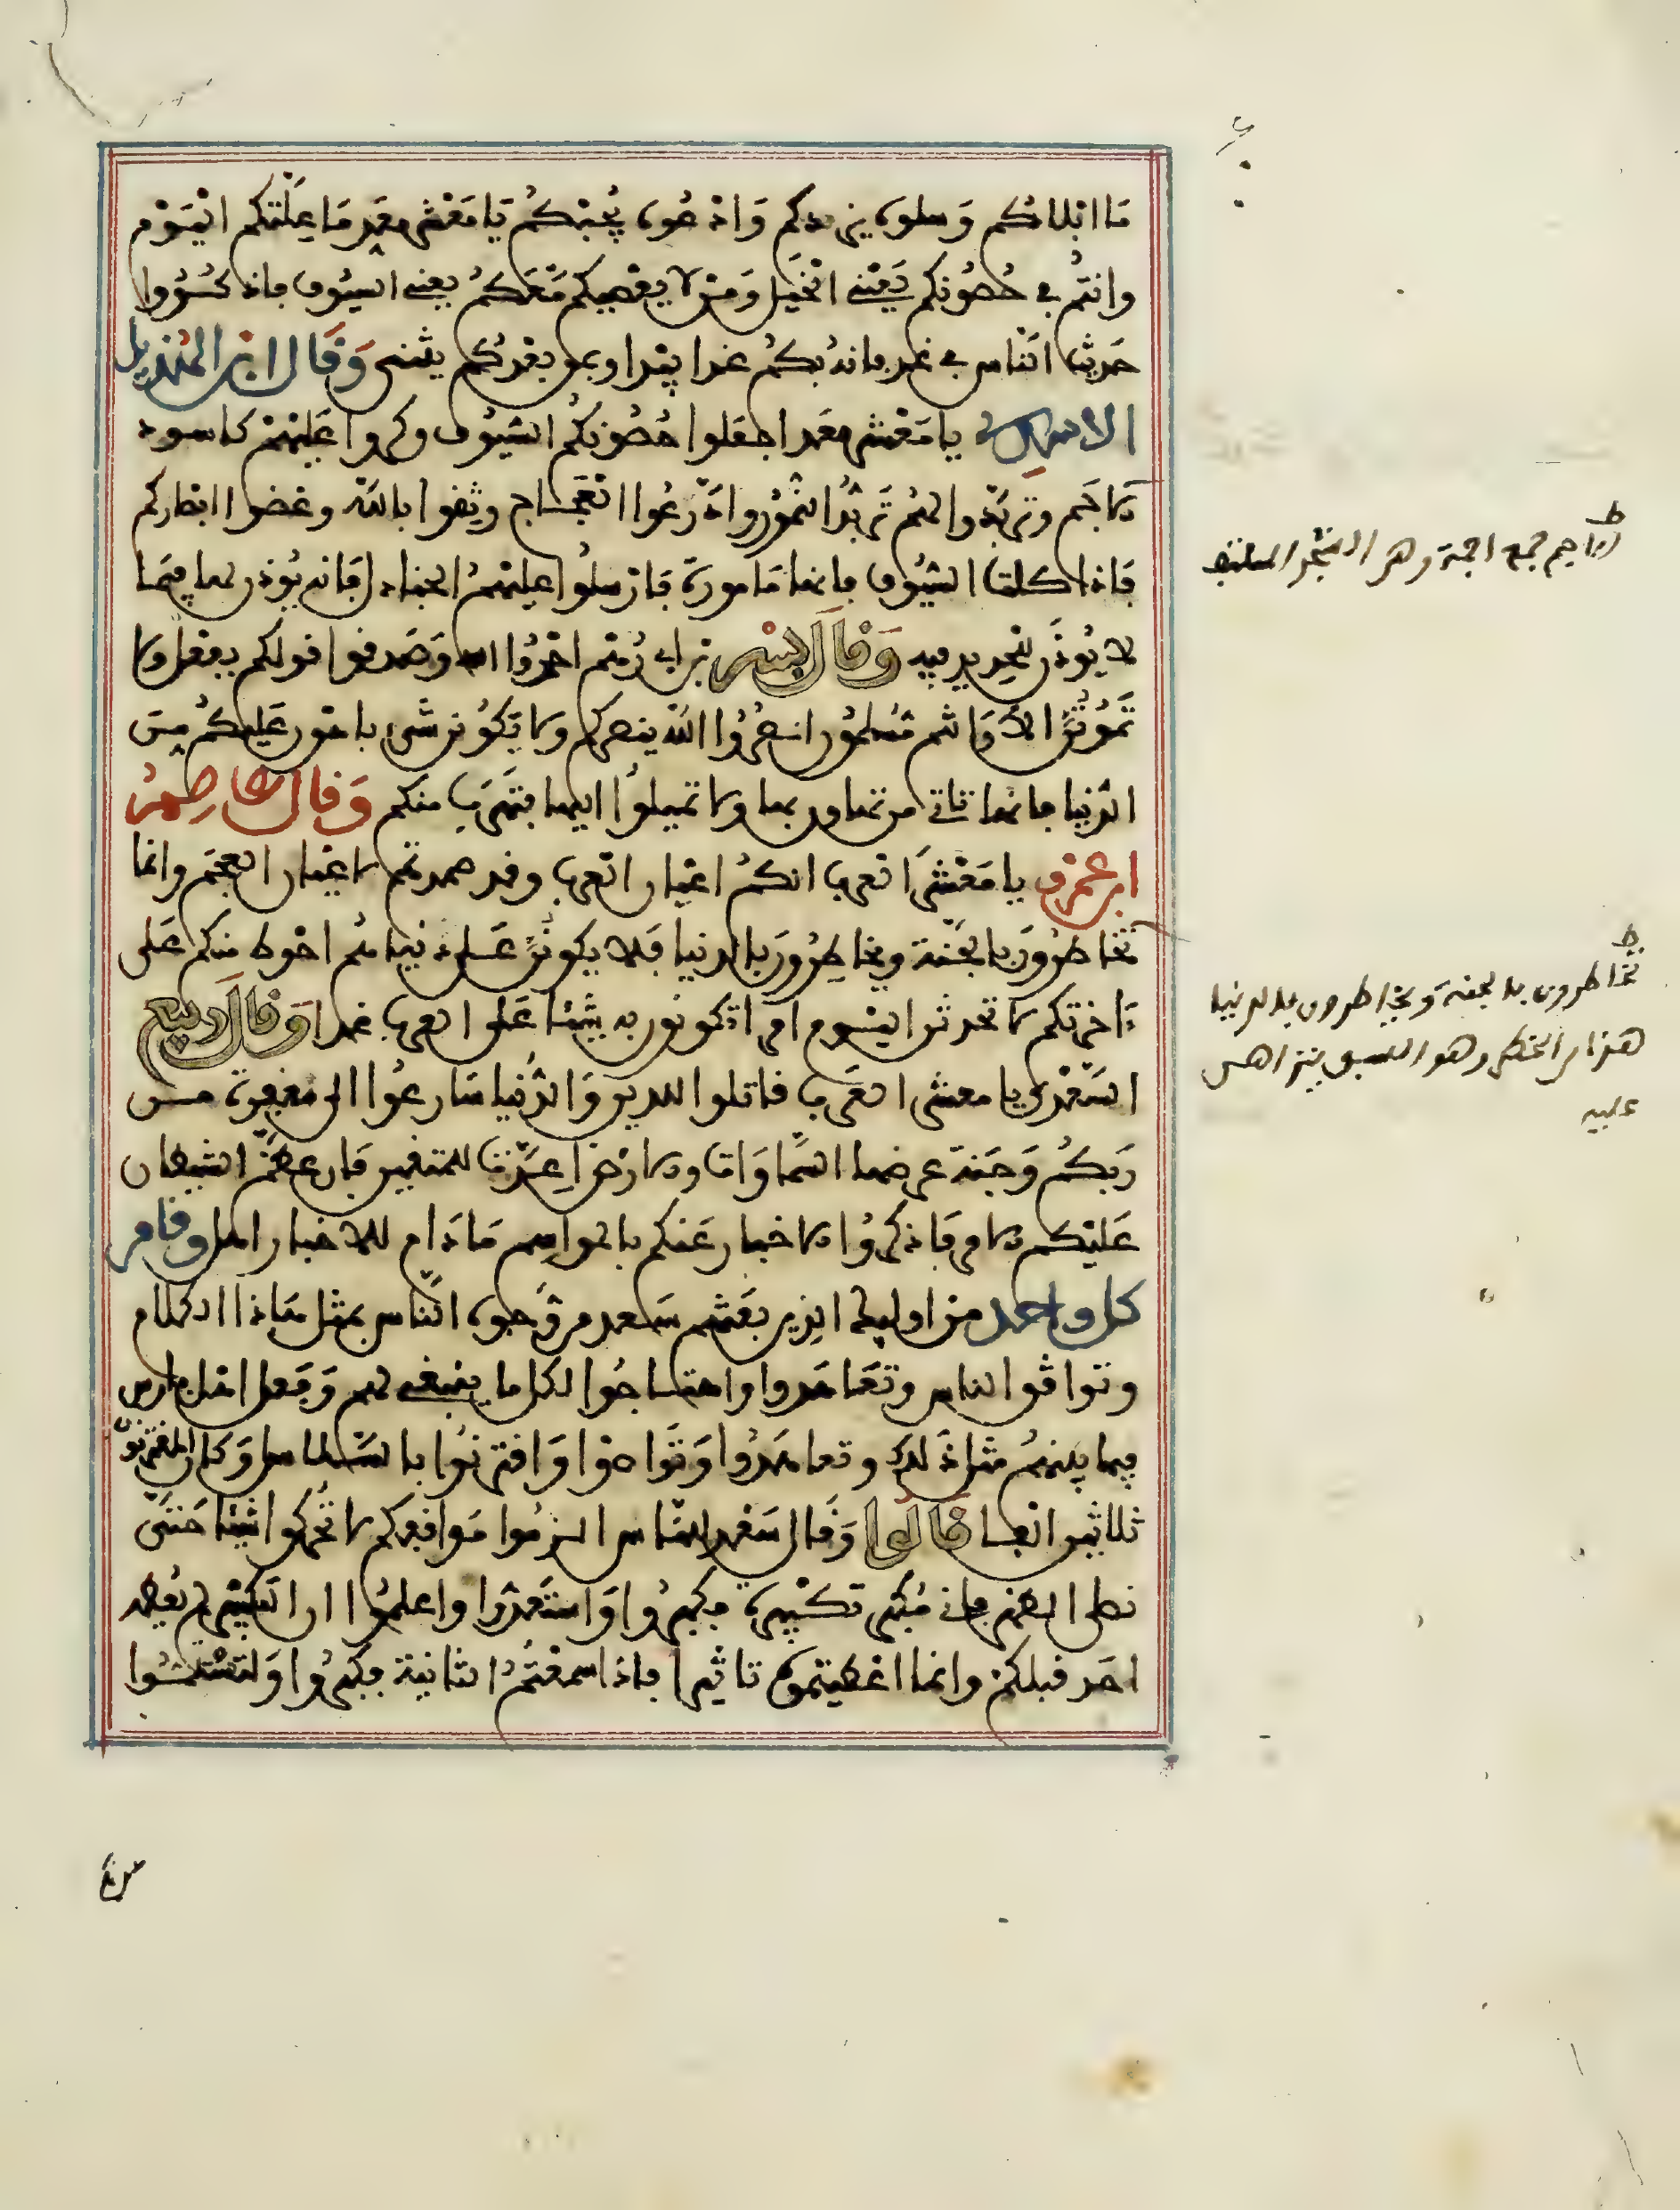 ما ابلاكم وسلوه يزدكم وادعوه يجبكم يا معشر معد ما علتكم اليوم
وانتم في حصونكم يعني الخيل ومن لا يعصيكم معكم يعني السيوف فاذكروا
حديث الناس في غد فانه بكم غدا يبدا وبمن بعدكم يثنى وقال ابن الهذيل
الاسدي يا معشر معد اجعلوا حصونكم السيوف وكونوا عليهم كاسود
الاجم وتربدوا لهم تربد النمور وادرعوا العجاج وثقوا بالله وغضوا ابصاركم
فاذا كلت السيوف فانها مامورة فارسلوا عليهم الجنادل فانه يوذن لها فيما
لا يوذن للحديد فيه وقال بسر بن ابي رهم احمدوا الله وصدقوا قولكم بفعل ولا
تموتن الا وانتم مسلمون انصروا الله ينصركم ولا يكونن شيء باهون عليكم من
الدنيا فانها تاتي من تهاون بها ولا تميلوا اليها فتهرب منكم وقال عاصم
بن عمرو يا معشر العرب انكم اعيان العرب وقد صمدتم لاعيان العجم وانما
تخاطرون بالجنة ويخاطرون بالدنيا فلا يكونن على دنياهم احوط منكم على
ءاخرتكم لا تحدثن اليوم امرا تكونون به شينا على العرب غدا وقال ربيع
السعدي يا معشر العرب قاتلوا للدين والدنيا سارعوا الى مغفرة من
ربكم وجنة عرضها السماوات والارض اعدت للمتقين فان عظم الشيطان
عليكم الامر فاذكروا الاخبار عنكم بالمواسم ما دام للاخبار اهل وقام
كل واحد من اوليك الذين بعثهم سعد من وجوه الناس بمثل هاذا الكلام
وتواثق الناس وتعاهدوا واهتاجوا لكل ما ينبغي لهم وفعل اهل فارس
فيما بينهم مثل ذلك وتعاهدوا وتواصوا واقترنوا بالسلاسل وكان المقترنون
ثلاثين الفا قالوا وقال سعد للناس الزموا مواقفكم لا تحركوا شيئا حتى
نصلى الظهر فاني مكبر تكبيرة فكبروا واستعدوا واعلموا ان التكبير لم يعطه
احد قبلكم وانما اعطيتموه تاييدا فاذا سمعتم الثانية فكبروا ولتستتموا
ط
الاجم جمع اجمة وهو الشجر الملتف
ط
تخاطرون بالجنة ويخاطرون بالدنيا
هذا من الخطر وهو السبق يتراهن
عليه